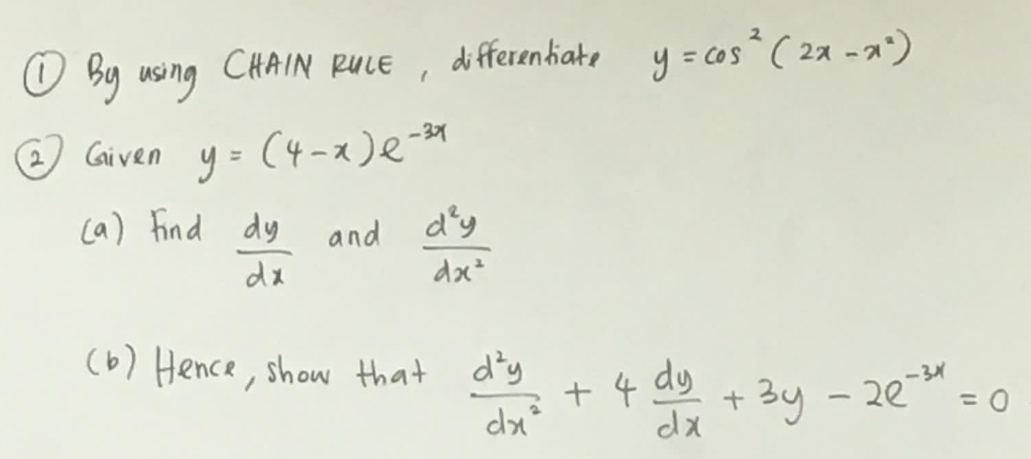 ① By using CHAIN RULE, differentiate y = cos²(2x - x²)
② Given y = (4-x)e⁻³ˣ
(a) Find dy/dx and d²y/dx²
(b) Hence, show that d²y/dx² + 4 dy/dx + 3y - 2e⁻³ˣ = 0